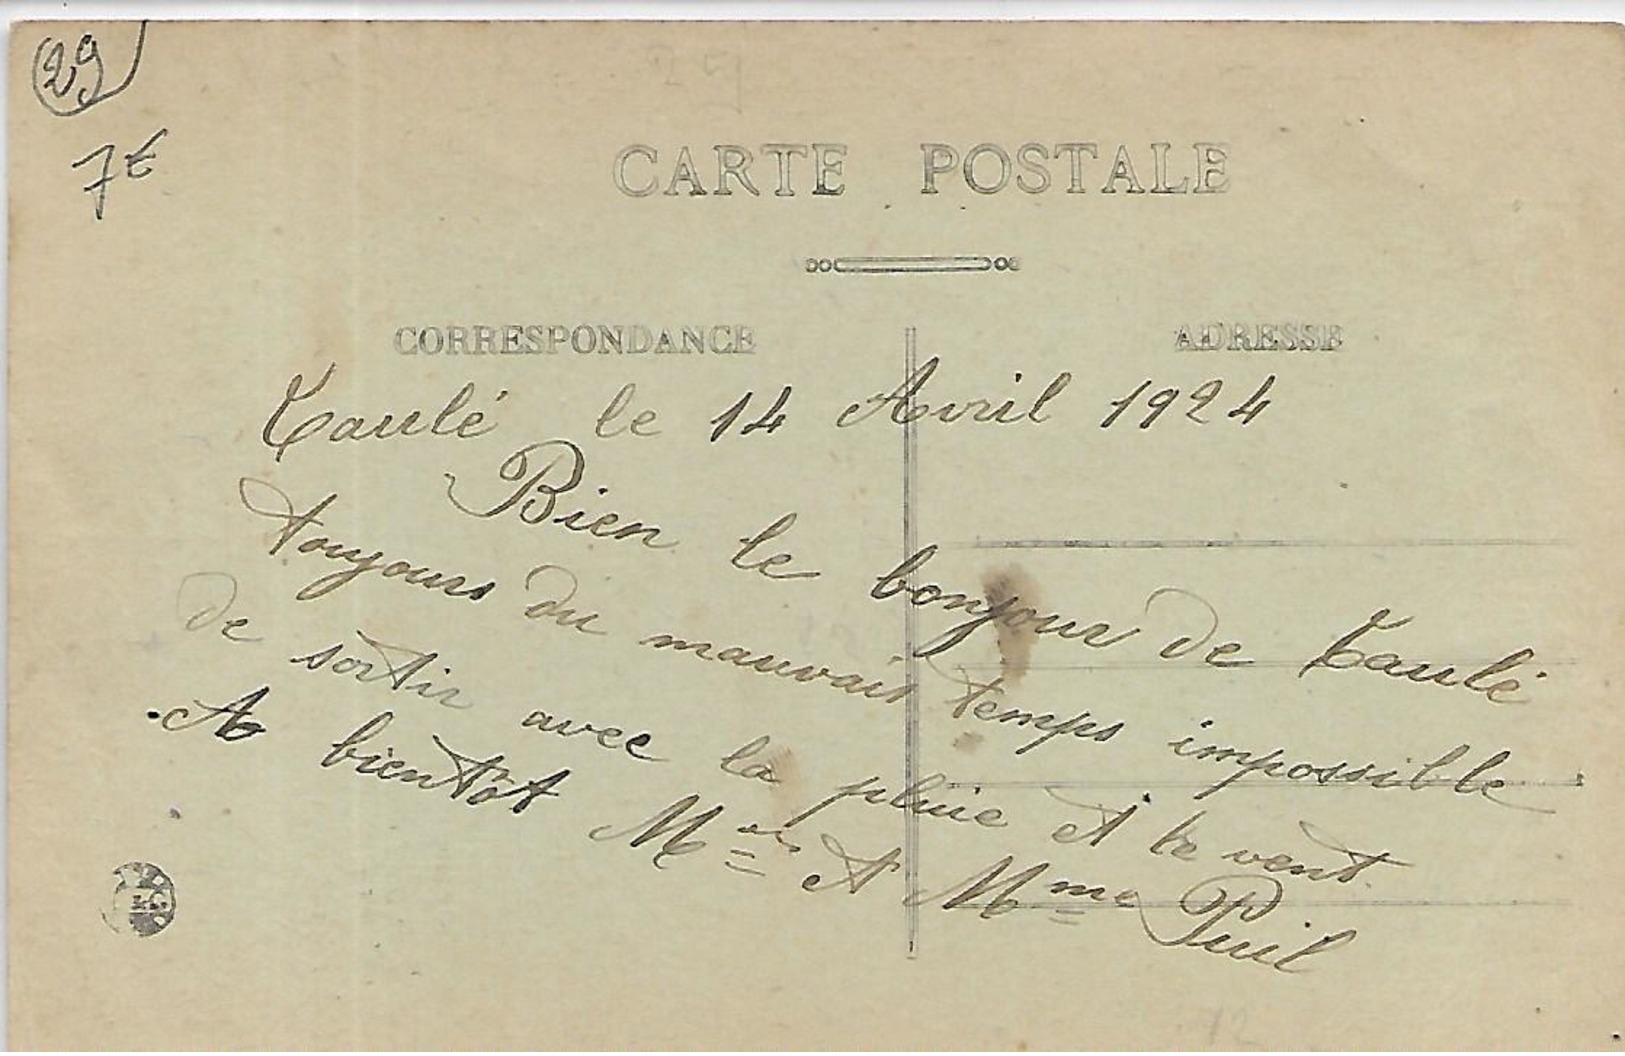 29
7€
CARTE POSTALE
CORRESPONDANCE
ADRESSE
Taulé le 14 Avril 1924
Bien le bonjour de Taulé
toujours du mauvais temps impossible
de sortir avec la pluie et le vent
A bientôt Mr et Mme Puil